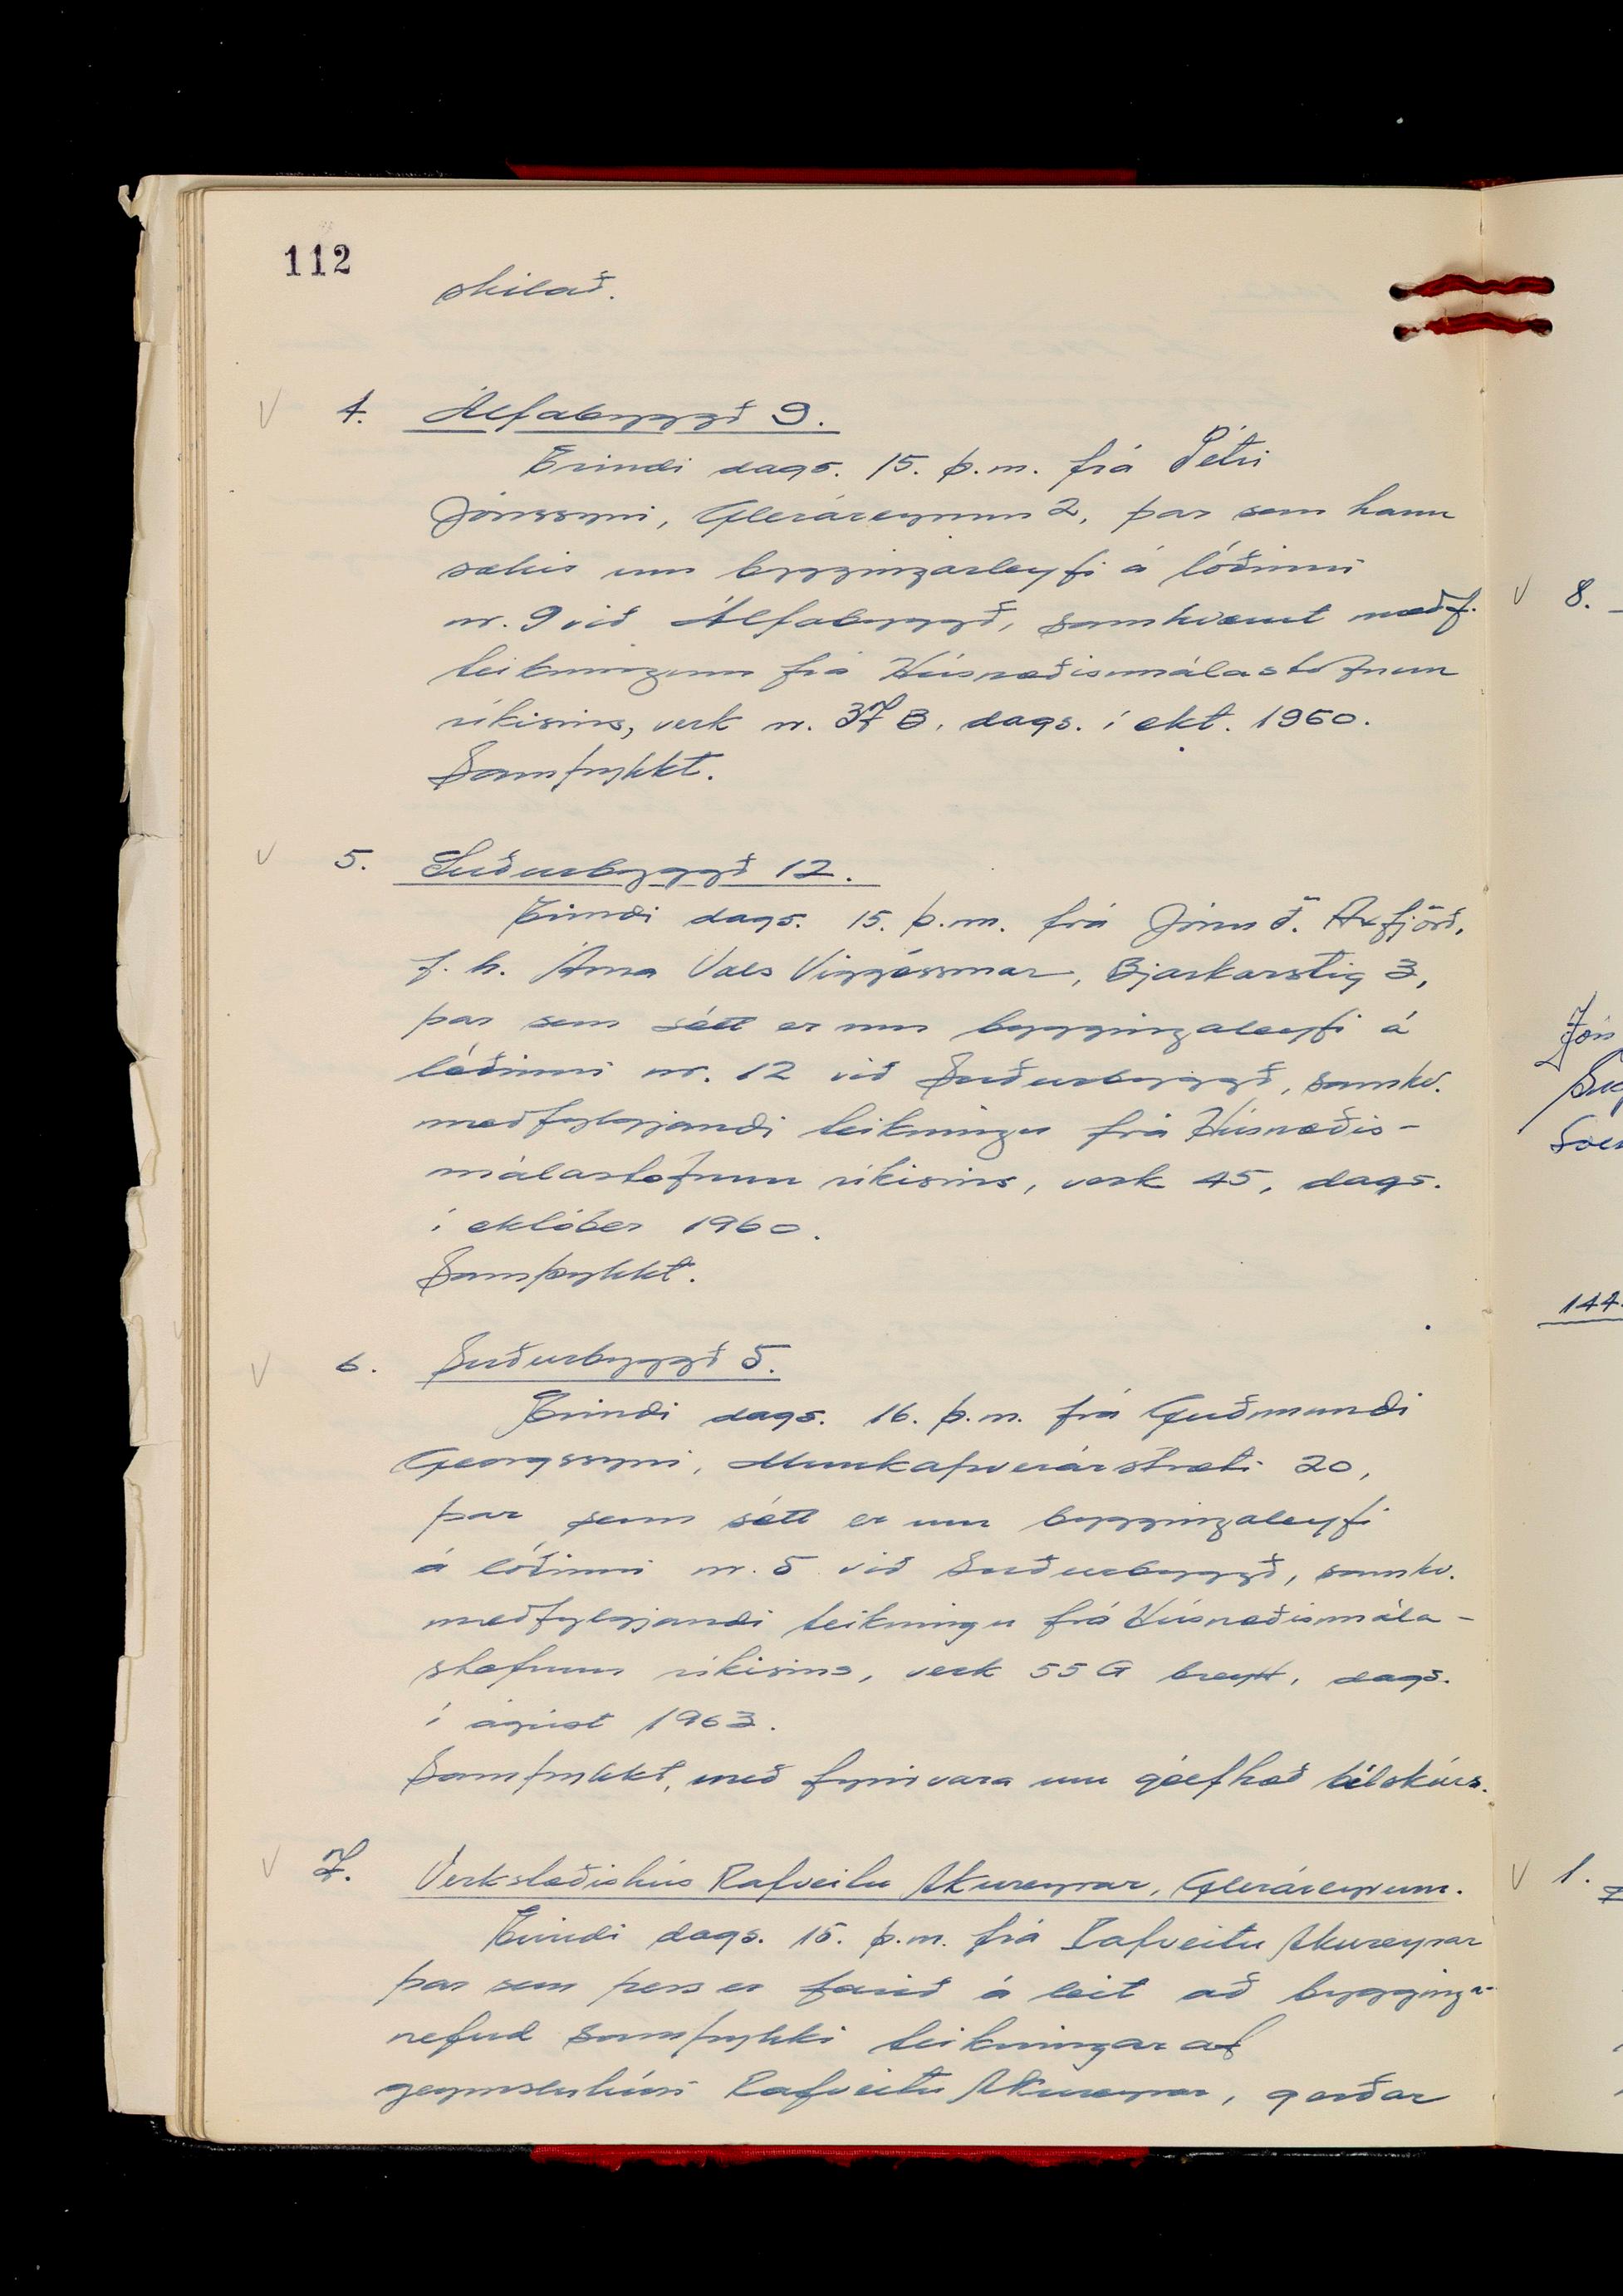 112
skilað.
V 4. Álfabyggð 9.
Erindi dags. 15. þ.m. frá Pétri
Jónssyni, Gleráreyrum 2, þar sem hann
sækir um byggingarleyfi á lóðinni
nr. 9 við Álfabyggð, samkvæmt meðf.
teikningum frá Húsnæðismálastofnun
ríkisins, verk nr. 37 B, dags. í okt. 1960.
Samþykkt.
V 5. Suðurbyggð 12.
Erindi dags. 15. þ.m. frá Jónu Ó. Axfjörð,
f.h. Árna Vals Viggóssonar, Bjarkarstíg 3,
þar sem sótt er um byggingaleyfi á
lóðinni nr. 12 við Suðurbyggð, samkv.
meðfylgjandi teikningu frá Húsnæðis-
málastofnun ríkisins, verk 45, dags.
í október 1960.
Samþykkt.
V 6. Suðurbyggð 5.
Erindi dags. 16. þ.m. frá Guðmundi
Georgssyni, Munkaþverárstræti 20,
þar sem sótt er um byggingaleyfi
á lóðinni nr. 5 við Suðurbyggð, samkv.
meðfylgjandi teikningu frá Húsnæðismála-
stofnun ríkisins, verk 55 G breytt, dags.
í ágúst 1963.
Samþykkt, með fyrirvara um gólfhæð bílskúrs.
V 7. Verkstæðishús Rafveitu Akureyrar, Gleráreyrum.
Erindi dags. 15. þ.m. frá Rafveitu Akureyrar
þar sem þess er farið á leit að bygginga-
nefnd samþykki teikningar af
geymsluhúsi Rafveitu Akureyrar, gerðar
V 8.
Jón
144.
V 1.